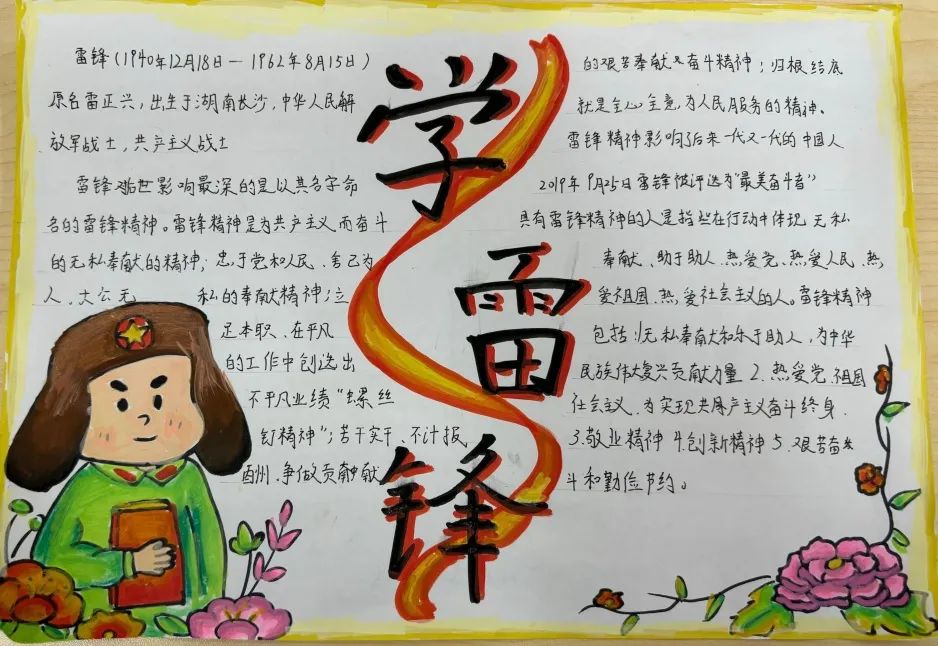 学
雷
锋
雷锋(1940年12月18日—1962年8月15日)
原名雷正兴,出生于湖南长沙,中华人民解
放军战士,共产主义战士
雷锋 世影响最深的是以其名字命
名的雷锋精神。雷锋精神是为共产主义而奋斗
的无私奉献的精神;忠于党和人民、舍己为
人、大公无私的奉献精神;立
足本职、在平凡
的工作中创造出
不平凡业绩“螺丝
钉精神”;苦干实干、不计报
酬州、争做贡献献
的艰苦奉献 奋斗精神;归根结底
就是全心全意为人民服务的精神。
雷锋精神影响了后来一代又一代的中国人
2019年9月25日雷锋被评选为“最美奋斗者”
具有雷锋精神的人是指些在行动中体现无私
奉献、助于助人、热爱党、热爱人民、热
爱祖国、热爱社会主义的人。雷锋精神
包括:1无私奉献和乐于助人,为中华
民族伟大复兴贡献力量 2.热爱党、祖国
社会主义、为实现共产主义奋斗终身.
3.敬业精神 4.创新精神 5.艰苦奋
斗和勤俭节约。